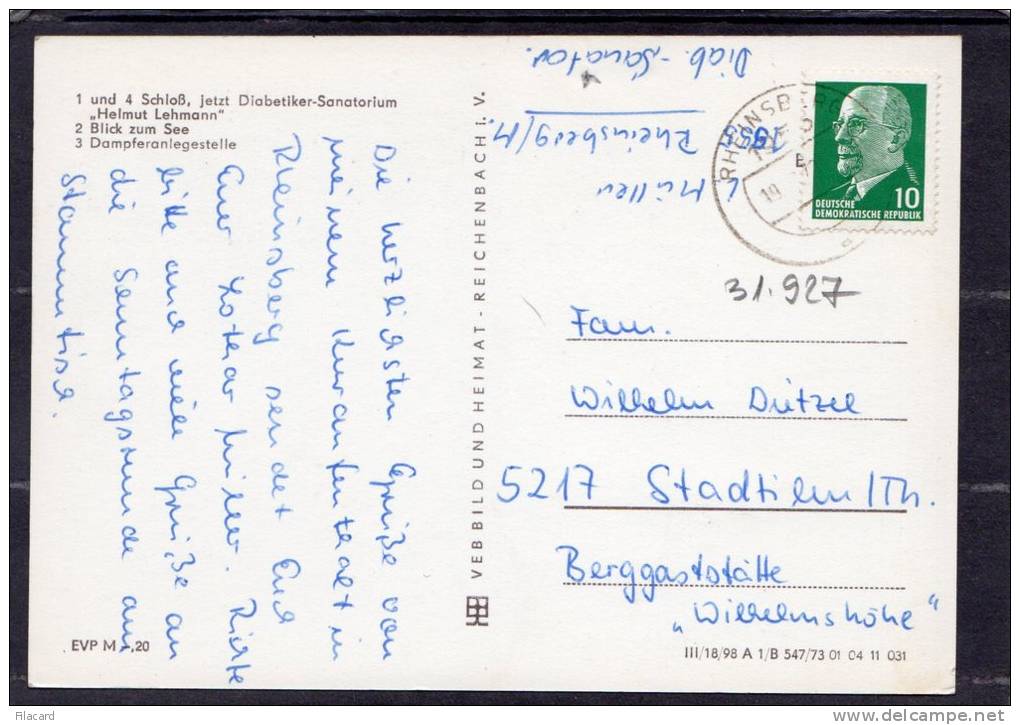 1 und 4 Schloß, jetzt Diabetiker-Sanatorium
„Helmut Lehmann"
2 Blick zum See
3 Dampferanlegestelle
Die herzlichsten Grüße von
meinem Kuraufenthalt in
Rheinsberg sendet Euch
Euer Lothar Müller. Richte
bitte auch viele Grüße an
die Samstagsrunde am
Stammtisch.
EVP M -,20
VEB BILD UND HEIMAT - REICHENBACH i. V.
L. Müller
Rheinsberg/M.
1955
Diab.-Sanator.
RHEINSBERG
DEUTSCHE
DEMOKRATISCHE REPUBLIK
10
31.927
Fam.
Wilhelm Dützel
5217 Stadtilm/Th.
Berggaststätte
„Wilhelmshöhe"
III/18/98 A 1/B 547/73 01 04 11 031
Filacard
www.delcampe.net